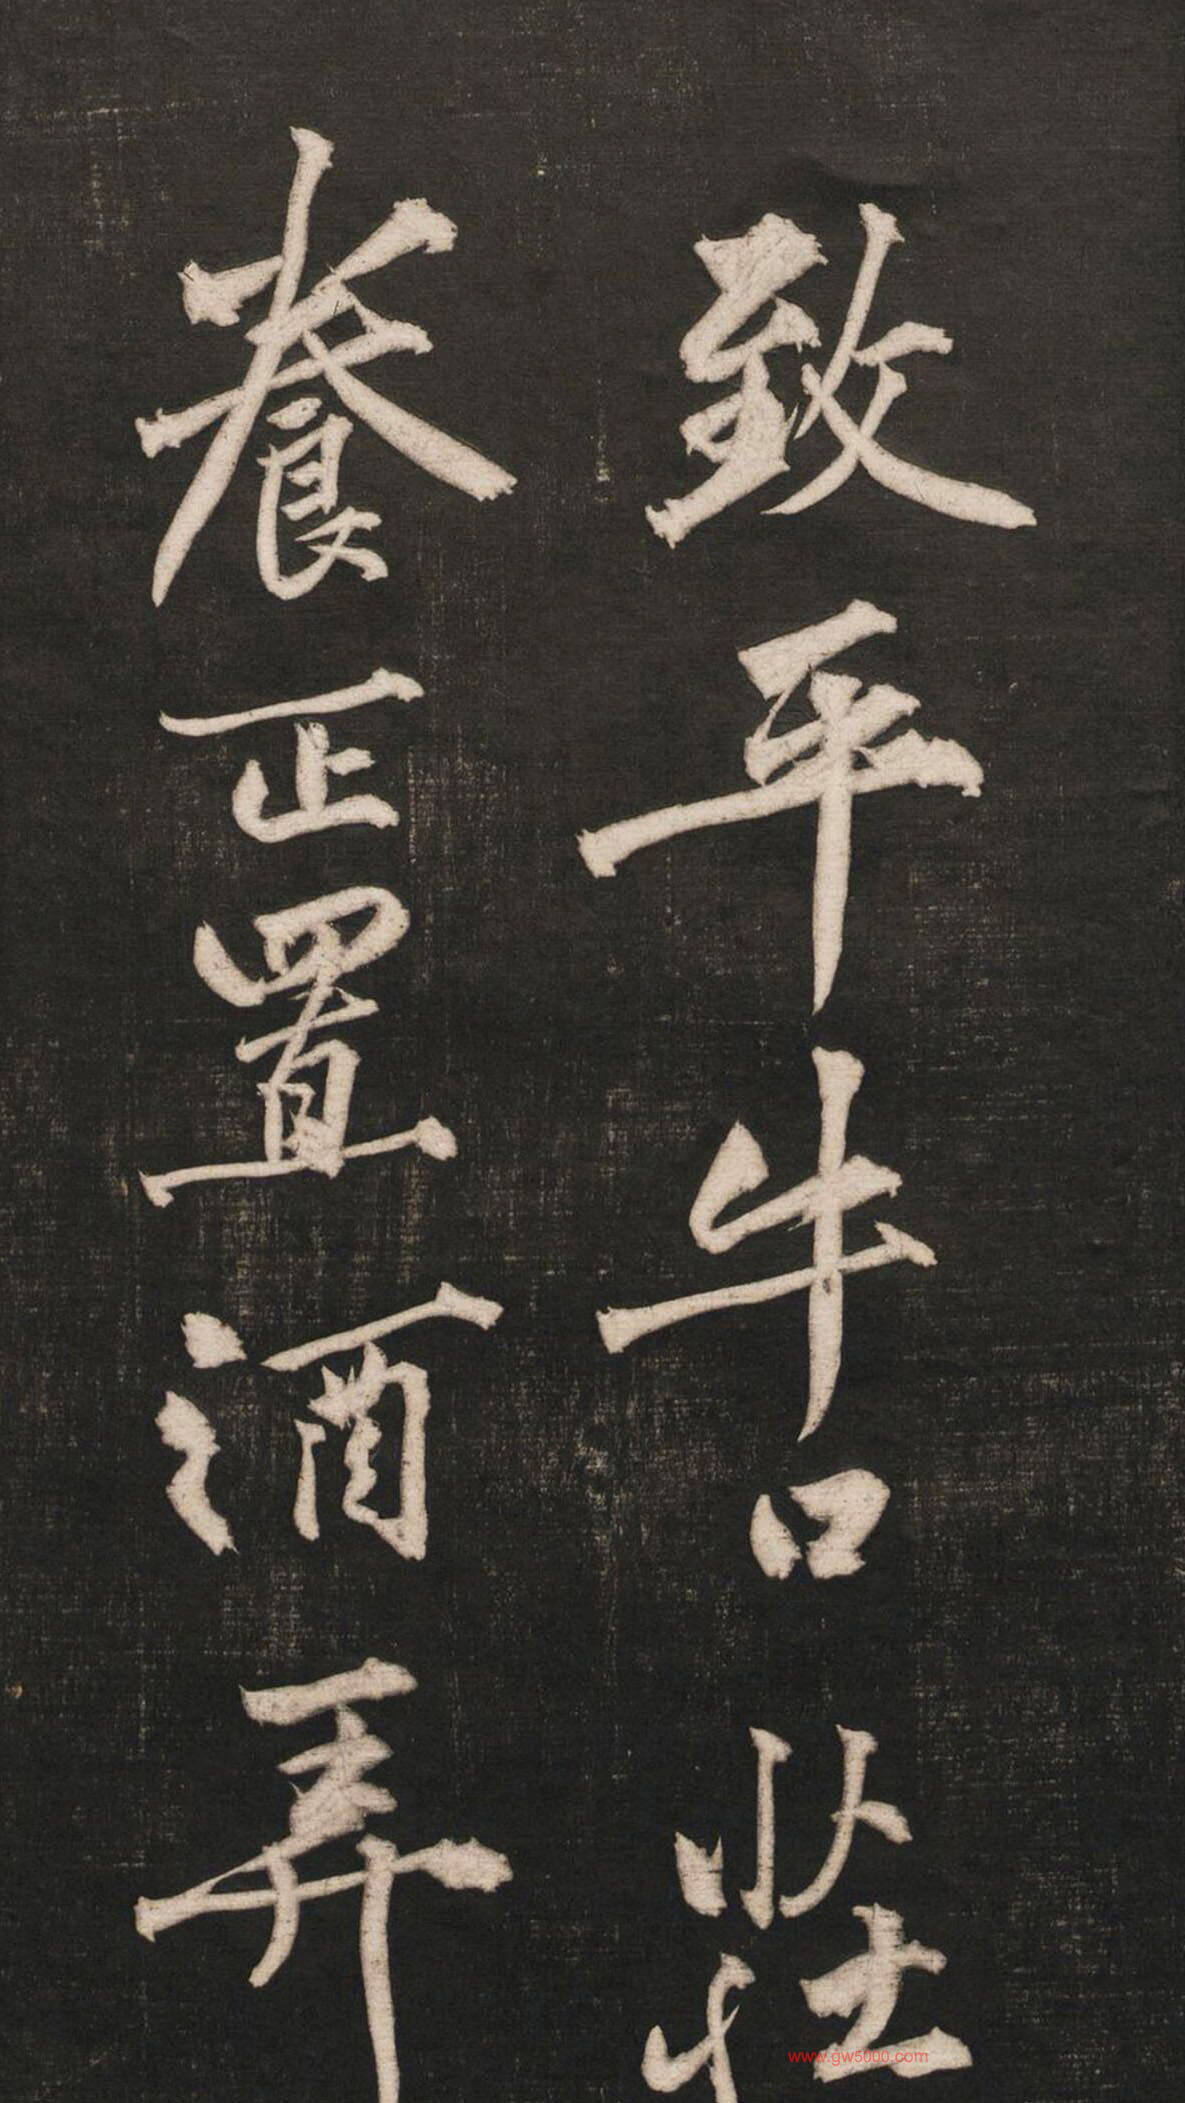 致平牛口莊
養正置酒弄
www.gw5000.com